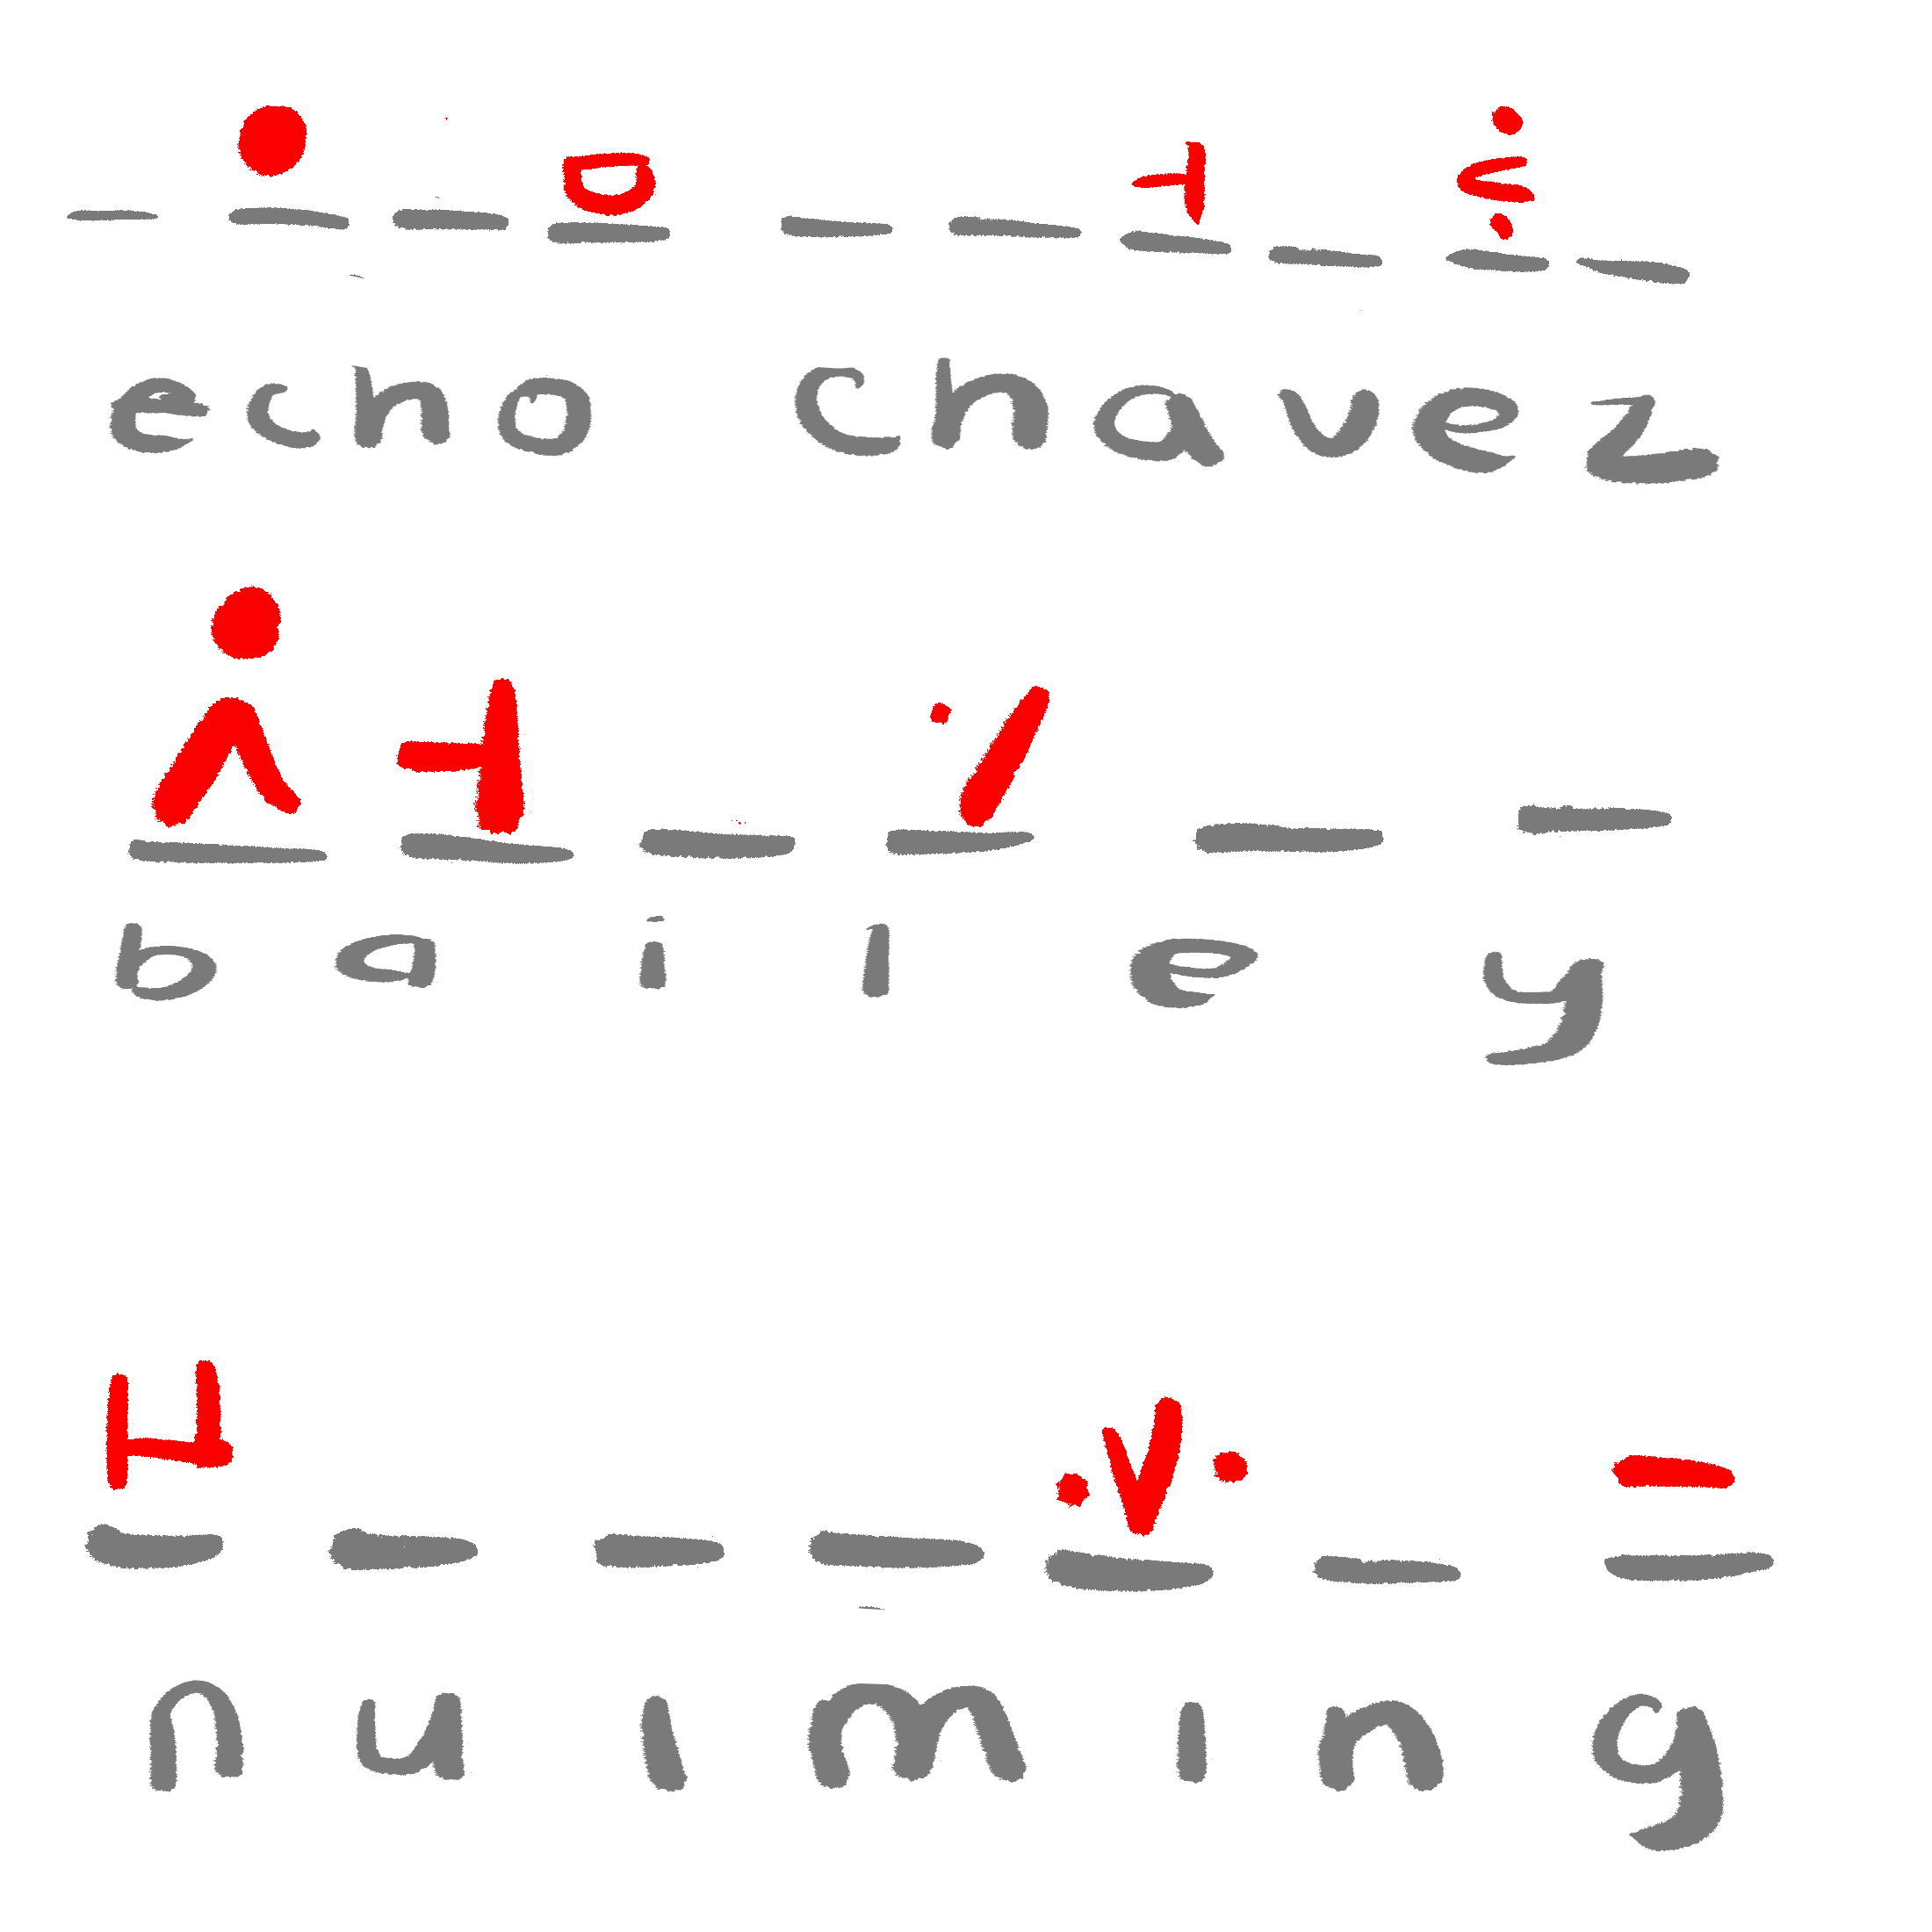 echo chavez
bailey
nuiming